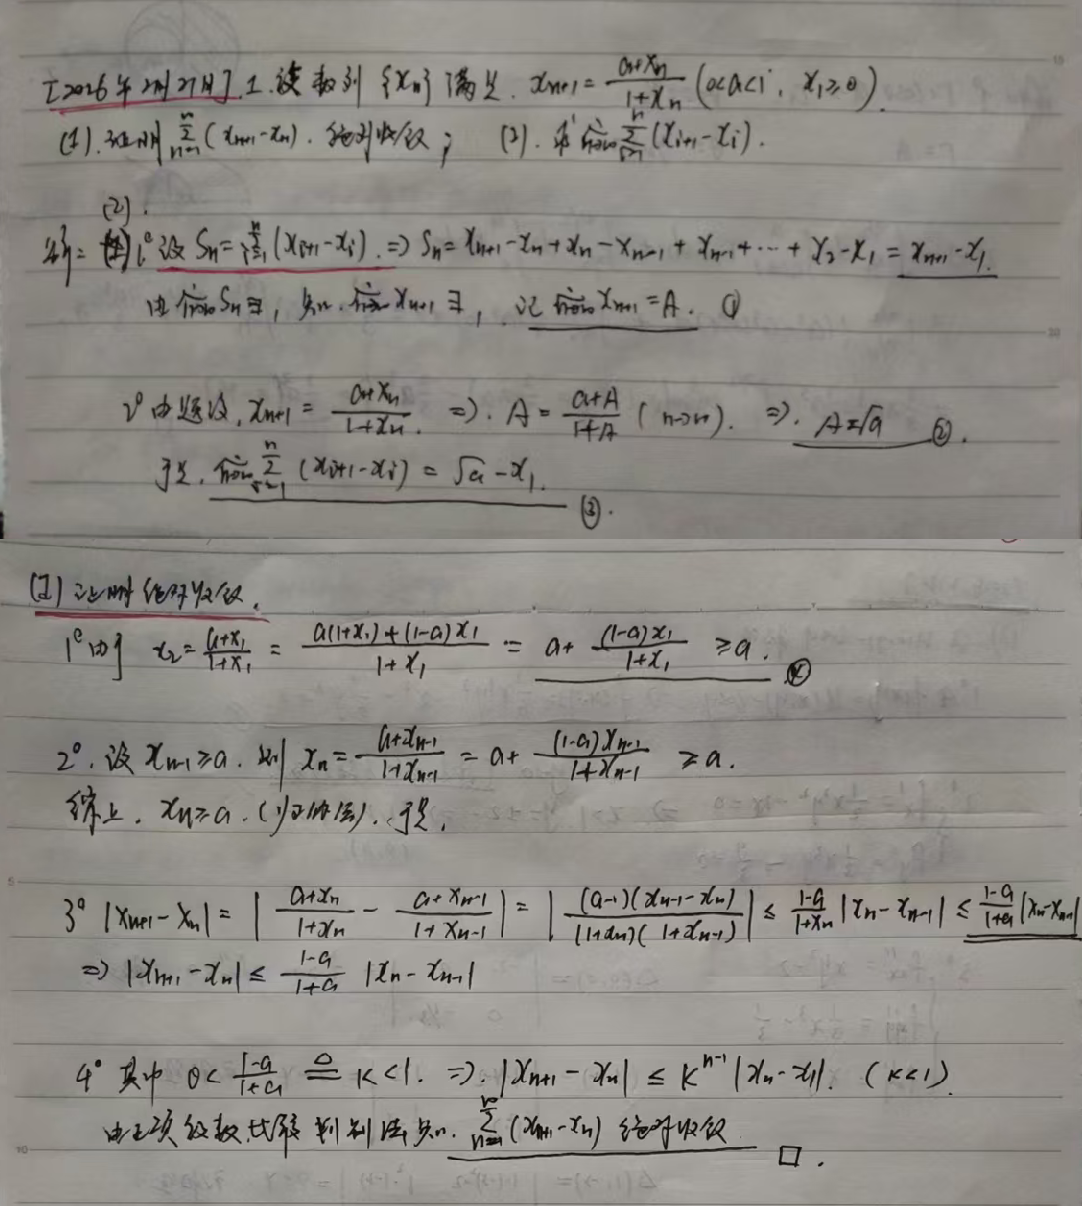 [2026年2月27日] 1. 设数列 {xₙ} 满足. xₙ₊₁ = (a+xₙ)/(1+xₙ) (0<a<1, x₁≥0).
(1). 证明 ∑ₙ₌₁^∞ (xₙ₊₁-xₙ). 绝对收敛; (2). 求 lim n→∞ ∑ᵢ₌₁ⁿ (xᵢ₊₁-xᵢ).
(2).
解: 1° 设 Sₙ = ∑ᵢ₌₁ⁿ (xᵢ₊₁-xᵢ). ⇒ Sₙ = xₙ₊₁-xₙ+xₙ-xₙ₋₁+xₙ₋₁+⋯+x₂-x₁ = xₙ₊₁-x₁.
由 lim n→∞ Sₙ ∃, 知. lim n→∞ xₙ₊₁ ∃, 记 lim n→∞ xₙ₊₁ = A. ①
2° 由题设, xₙ₊₁ = (a+xₙ)/(1+xₙ). ⇒. A = (a+A)/(1+A) (n→∞). ⇒. A=√a ②.
于是, lim n→∞ ∑ᵢ₌₁ⁿ (xᵢ₊₁-xᵢ) = √a-x₁. ③.
(1) 证明绝对收敛.
1° 由于 x₂ = (a+x₁)/(1+x₁) = (a(1+x₁)+(1-a)x₁)/(1+x₁) = a+ ((1-a)x₁)/(1+x₁) ≥a.
2°. 设 xₙ₋₁≥a. 则 xₙ = (a+xₙ₋₁)/(1+xₙ₋₁) = a+ ((1-a)xₙ₋₁)/(1+xₙ₋₁) ≥a.
综上. xₙ≥a. (归纳法). 于是,
3° |xₙ₊₁-xₙ| = |(a+xₙ)/(1+xₙ) - (a+xₙ₋₁)/(1+xₙ₋₁)| = |((a-1)(xₙ₋₁-xₙ))/((1+xₙ)(1+xₙ₋₁))| ≤ (1-a)/(1+xₙ) |xₙ-xₙ₋₁| ≤ (1-a)/(1+a) |xₙ-xₙ₋₁|
⇒ |xₙ₊₁-xₙ| ≤ (1-a)/(1+a) |xₙ-xₙ₋₁|
4° 其中 0< (1-a)/(1+a) ≜ K<1. ⇒. |xₙ₊₁-xₙ| ≤ Kⁿ⁻¹ |x₂-x₁|. (K<1)
由正项级数比较判别法, 知. ∑ₙ₌₁^∞ (xₙ₊₁-xₙ) 绝对收敛 □.